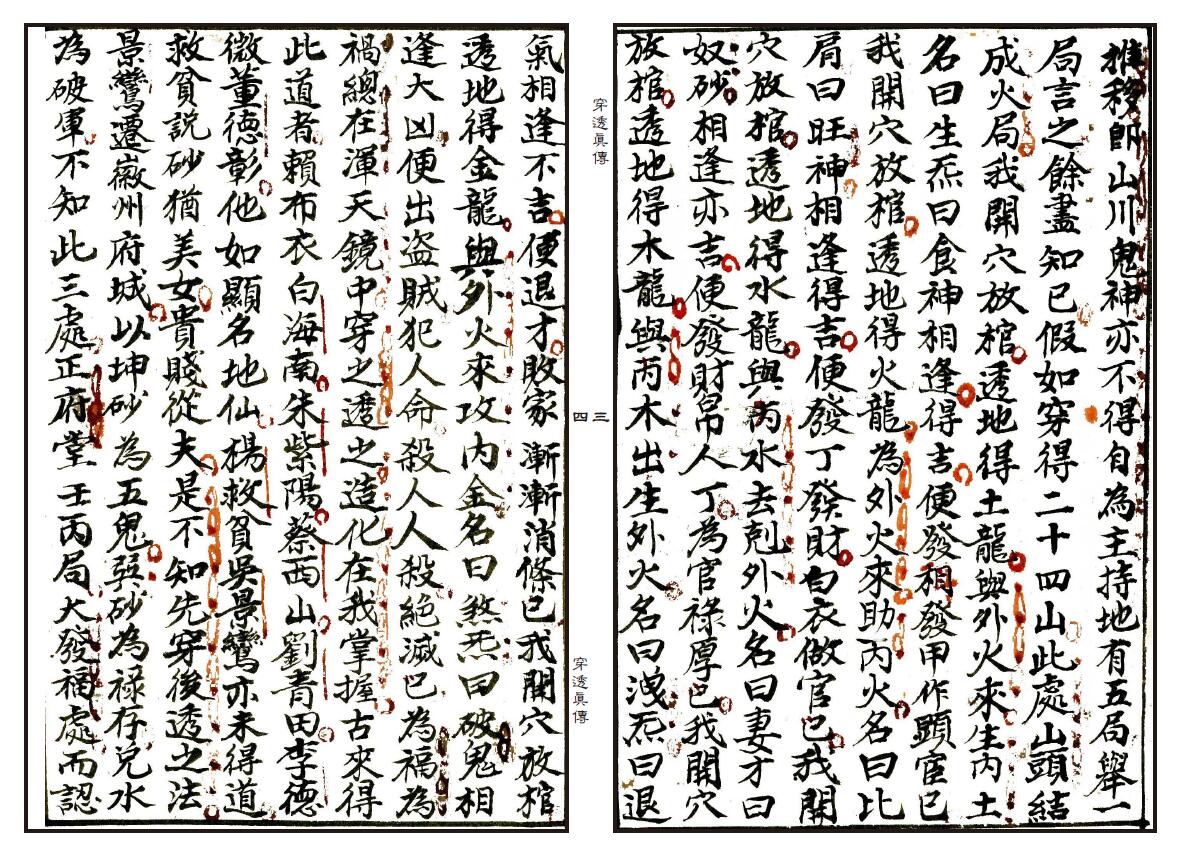 推移即山川鬼神亦不得自為主持地有五局舉一
局言之餘盡知已假如穿得二十四山此處山頭結
成火局我開穴放棺透地得土龍與外火來生內土
名曰生炁曰食神相逢得吉便發相發甲作顕宦已
我開穴放棺透地得火龍為外火來助內火名曰比
肩曰旺神相逢得吉便發丁發財白衣做官已我開
穴放棺透地得水龍與內水去剋外火名曰妻才曰
奴砂相逢亦吉便發財帛人丁為官祿厚已我開穴
放棺透地得木龍與內木出生外火名曰洩炁曰退
穿透眞傳
三四
穿透眞傳
氣相逢不吉便退才敗家漸漸消條已我開穴放棺
透地得金龍與外火來攻內金名曰煞炁曰破鬼相
逢大凶便出盗賊犯人命殺人人殺絕滅已為福為
禍總在渾天鏡中穿之透之造化在我掌握古來得
此道者賴布衣白海南朱紫陽蔡西山劉青田李德
微董德彰他如顯名地仙楊救貧吳景鸞亦未得道
救貧說砂猶美女貴賤從夫是不知先穿後透之法
景鸞遷徽州府城以坤砂為五鬼巽砂為祿存兌水
為破軍不知此三處正府堂壬丙局大發福處而認